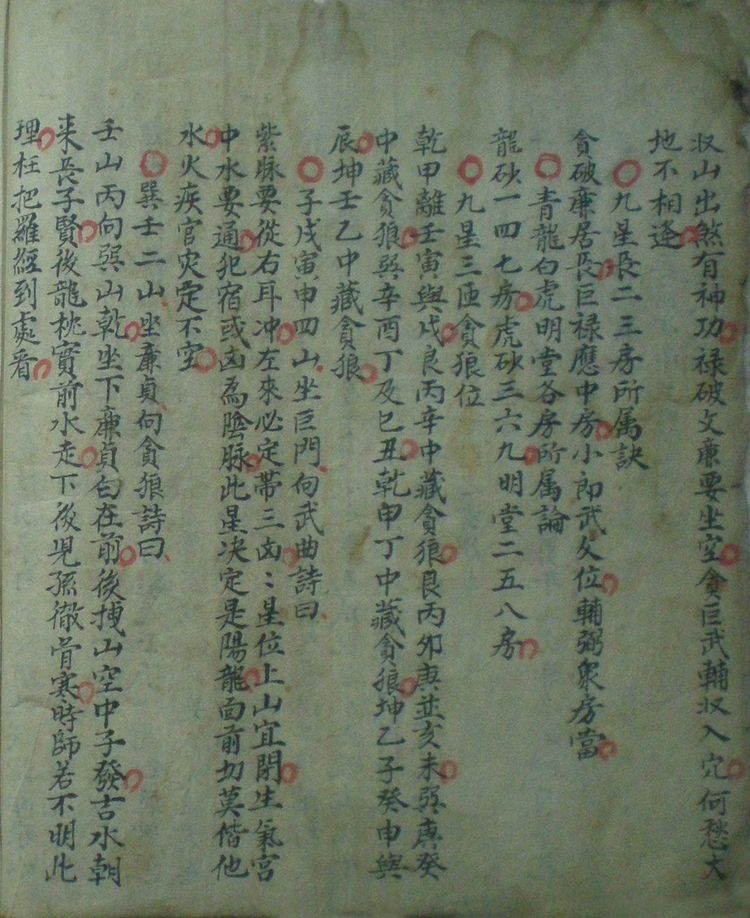 收山出煞有神功祿破文廉要坐空貪巨武輔収入穴何愁大
地不相逢
九星長二三房所属訣
貪破廉居長巨禄應中房小郎武文位輔弼衆房當
青龍白虎明堂各房所属論
龍砂一四七房虎砂三六九明堂二五八房
九星三匝貪狼位
乾甲離壬寅與戌艮丙辛中藏貪狼艮丙夘庚並亥未巽庚癸
中藏貪狼巽辛酉丁及巳丑乾申丁中藏貪狼坤乙子癸申與
辰坤壬乙中藏貪狼
子戌寅申四山坐巨門向武曲詩曰
紫脉要從右耳冲左來必定帶三凶〻星位上山宜閉生氣宮
中水要通犯宿或凶為陰脉此星决定是陽龍面前切莫偕他
水火疾官灾定不空
巽壬二山坐廉貞向貪狼詩曰
壬山丙向巽山乾坐下廉貞白在前後拽山空中子發吉水朝
来長子賢後龍枕實前水走下後児孫徹骨寒時師若不明此
理枉把羅經到處看